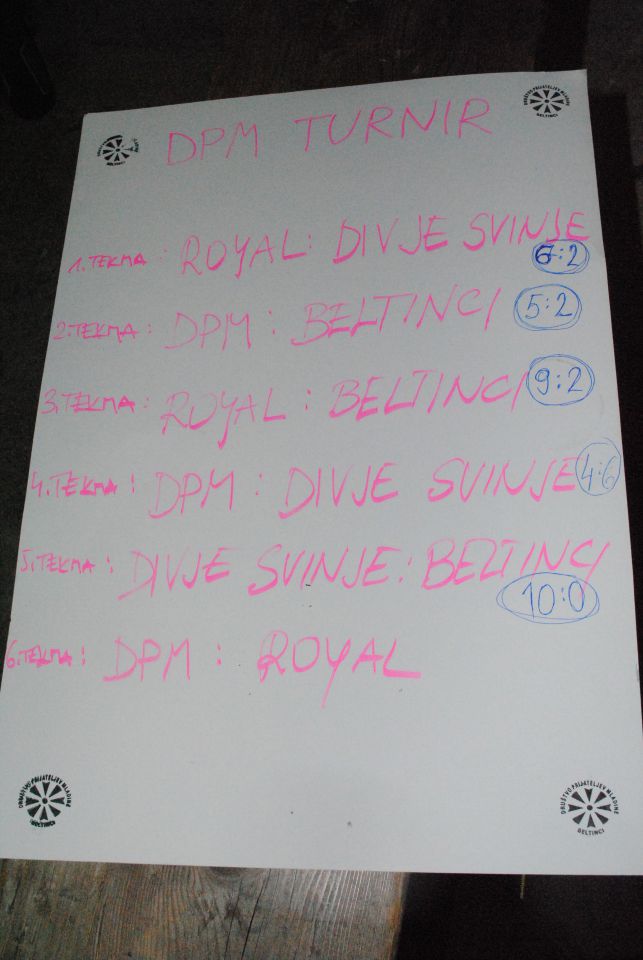 DPM TURNIR
DRUŠTVO PRIJATELJEV MLADINE
BELTINCI
1. TEKMA : ROYAL : DIVJE SVINJE
6:2
2. TEKMA : DPM : BELTINCI 5:2
3. TEKMA : ROYAL : BELTINCI 9:2
4. TEKMA : DPM : DIVJE SVINJE 4:6
5. TEKMA : DIVJE SVINJE : BELTINCI
10:0
6. TEKMA : DPM : ROYAL
DRUŠTVO PRIJATELJEV MLADINE
BELTINCI
DRUŠTVO PRIJATELJEV MLADINE
BELTINCI